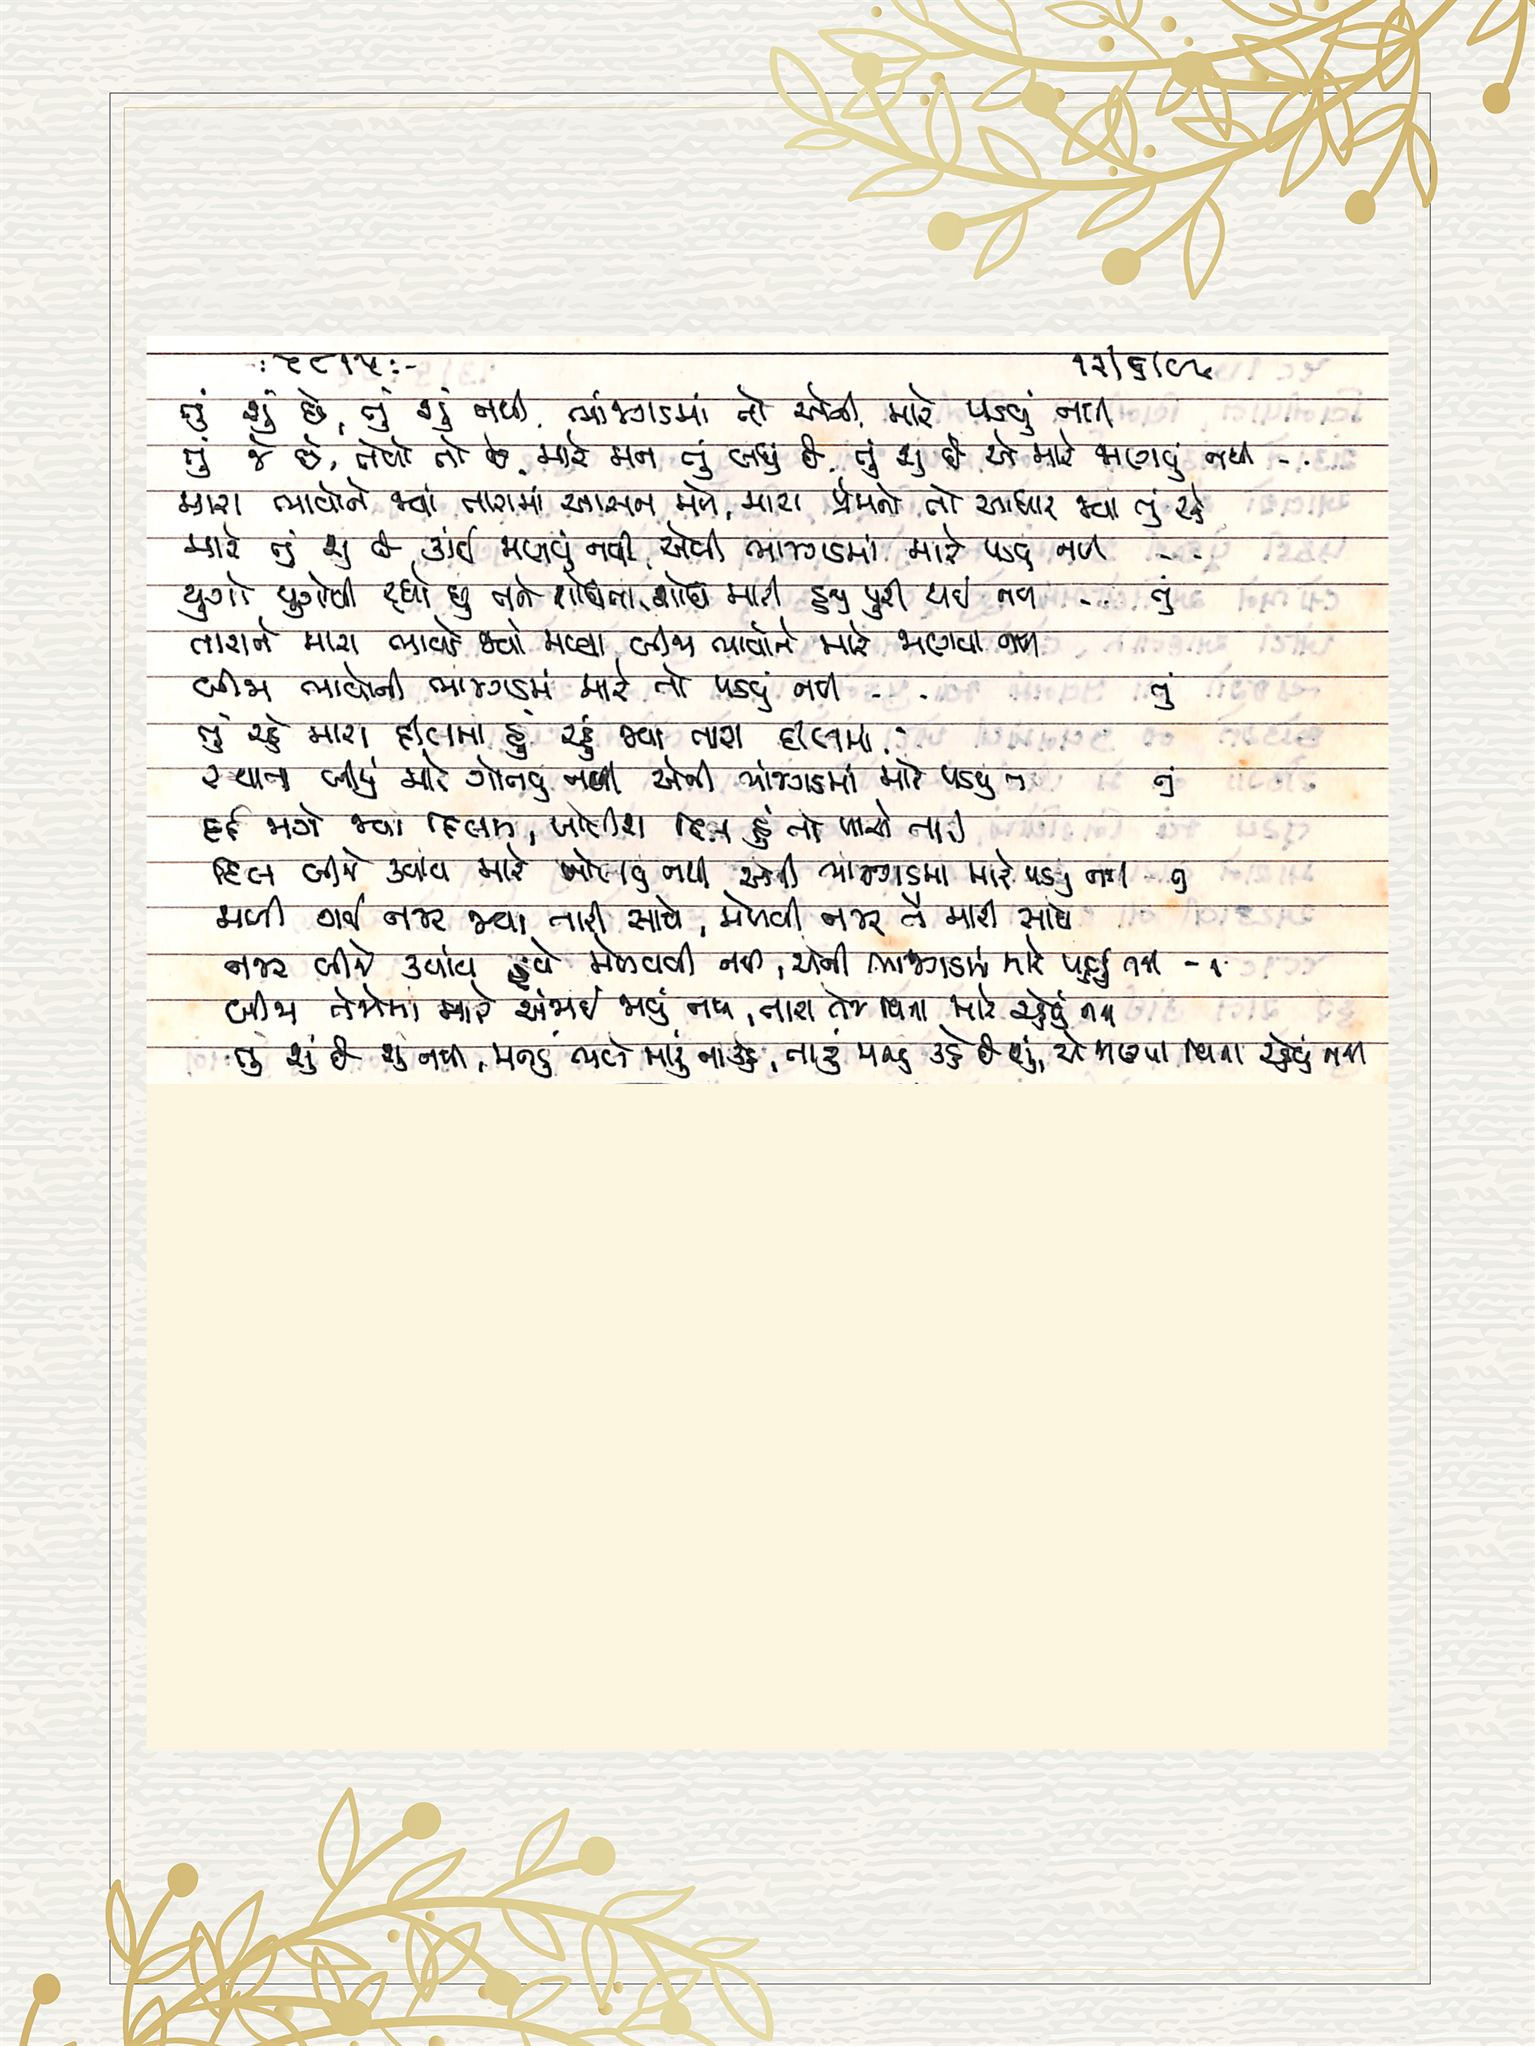 :૨૮૧૫:-
૧૨/૬/૮૫
તું શું છે, તું શું નથી, ભાંજગડમાં તો એની, મારે પડવું નથી
તું જે છે, તેવો તો છે, મારે મન તું બધું છે, તું શું છે એ મારે જાણવું નથી -..
મારા ભાવોને જ્યાં તારામાં આસન મળે, મારા પ્રેમનો તો આધાર જ્યાં તું રહે
મારે તું શું છે કાંઈ જાણવું નથી, એવી ભાંજગડમાં મારે પડવું નથી ---
યુગો યુગોથી રહ્યો છું તને શોધતા, શોધ મારી હજી પુરી થઈ નથી --. તું
તારાને મારા ભાવો જ્યાં મળ્યા, બીજા ભાવોને મારે જાણવા નથી
બીજા ભાવોની ભાંજગડમાં મારે તો પડવું નથી --. તું
તું રહે મારા દીલમાં, હું રહું જ્યાં તારા દીલમાં.
સ્થાન બીજું મારે ગોતવું નથી એની ભાંજગડમાં મારે પડવું ન તું
દર્દ જાગે જ્યાં દિલમાં, ખોલીશ દિલ હું તો પાસે તારી
દિલ બીજે ક્યાંય મારે ખોલવું નથી એની ભાંજગડમાં મારે પડવું નથી - તું
મળી ગઈ નજર જ્યાં તારી સાથે, મેળવી નજર તેં મારી સાથે
નજર બીજે ક્યાંય હવે મેળવવી નથી, એની ભાંજગડમાં મારે પડવું નથી - તું
બીજા તેજમાં મારે અંજાઈ જાવું નથી, તારા તેજ વિના મારે રહેવું નથી
તું શું છે શું નથી, મનડું ભલે મારું ના કહે, તારું મનડું કહે છે શું, એ જાણ્યા વિના રહેવું નથી